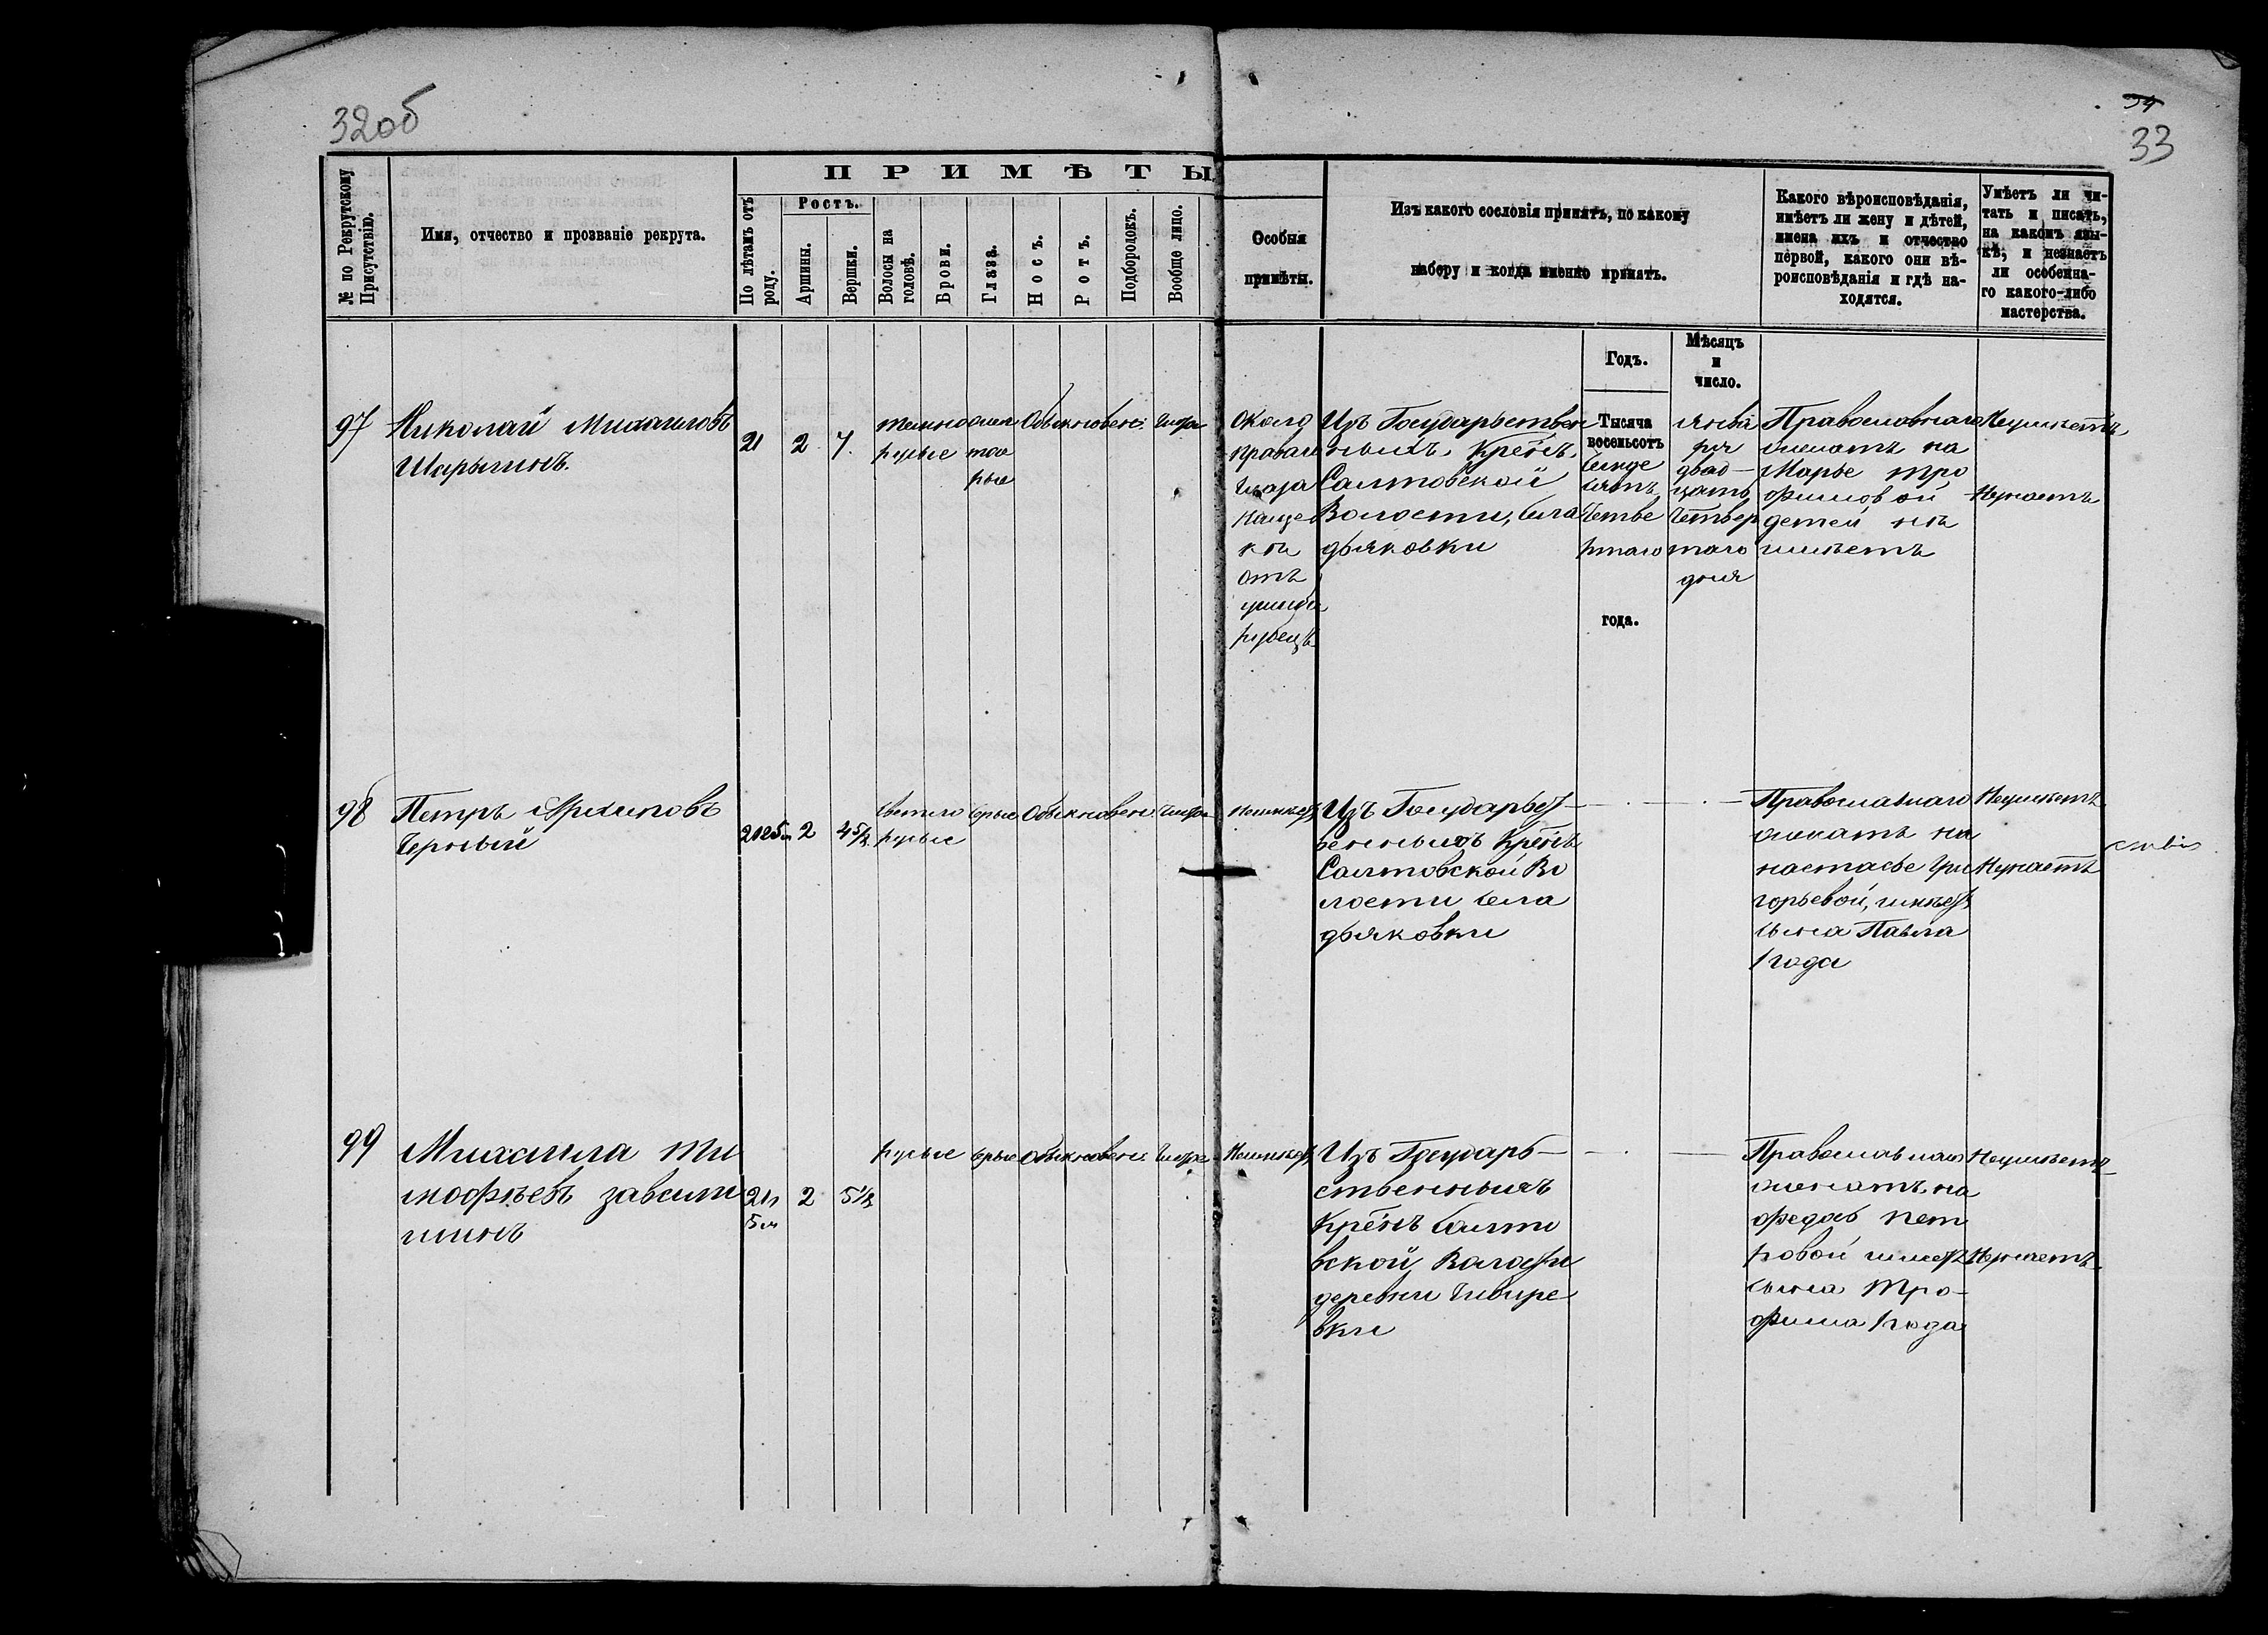 32об
34
33
ПРИМѢТЫ
№ по Рекрутскому Присутствію.
Имя, отчество и прозваніе рекрута.
По лѣтамъ отъ роду.
Ростъ.
Аршины.
Вершки.
Волосы на головѣ.
Брови.
Глаза.
Носъ.
Ротъ.
Подбородокъ.
Вообще лицо.
Особыя
примѣты.
Изъ какого сословія принятъ, по какому
набору и когда именно принятъ.
Какого вѣроисповѣданія,
имѣетъ ли жену и дѣтей,
имена ихъ и отчество
первой, какого они вѣ-
роисповѣданія и гдѣ на-
ходятся.
Умѣетъ ли чи-
тать и писать,
на какомъ язы-
кѣ, и незнаетъ
ли особенна-
го какого-либо
мастерства.
Годъ.
Мѣсяцъ
и
число.
97
Николай Михаиловъ
Шарыгинъ
21
2
7
темно
русые
Обыкновен.
чисто
Около
праваго
глаза
на щеке
отъ
ушиба
рубецъ
Изъ Государьствен
ныхъ Крестьнъ
Салтовской
Волости, села
дьяковки
Тысяча
восемьсотъ
семде
сятъ
Четве
ртаго
года.
Янва
ря
двад-
цать
Четвер
таго
дня
Православнаго
женатъ на
Марье Тро
фимовой
детей не
имѣетъ
Неумѣетъ
Незнаетъ
98
Петръ Архиповъ
Черный
21 2 5м
2
4 5/8
светло
русые
серые
Обыкновен.
чисто
Неимѣетъ
Изъ Государьст
венныхъ Крестьнъ
Салтовской Во
лости села
дьяковки
Православнаго
женатъ на
настасье Гри
горьевой, имѣетъ
сына Павла
1 года
Неумѣетъ
Незнаетъ
99
Михаила Ти
мофѣевъ
21л
5м
2
5 1/8
русые
серые
Обыкновен.
чисто
Неимѣетъ
Изъ Государь-
ственныхъ
Крестьнъ Салто
вской Волости
деревни
вки
Православнаго
женатъ на
федоре Пет
ровой имѣетъ
сына Тро-
фима 1 года
Неумѣетъ
Незнаетъ